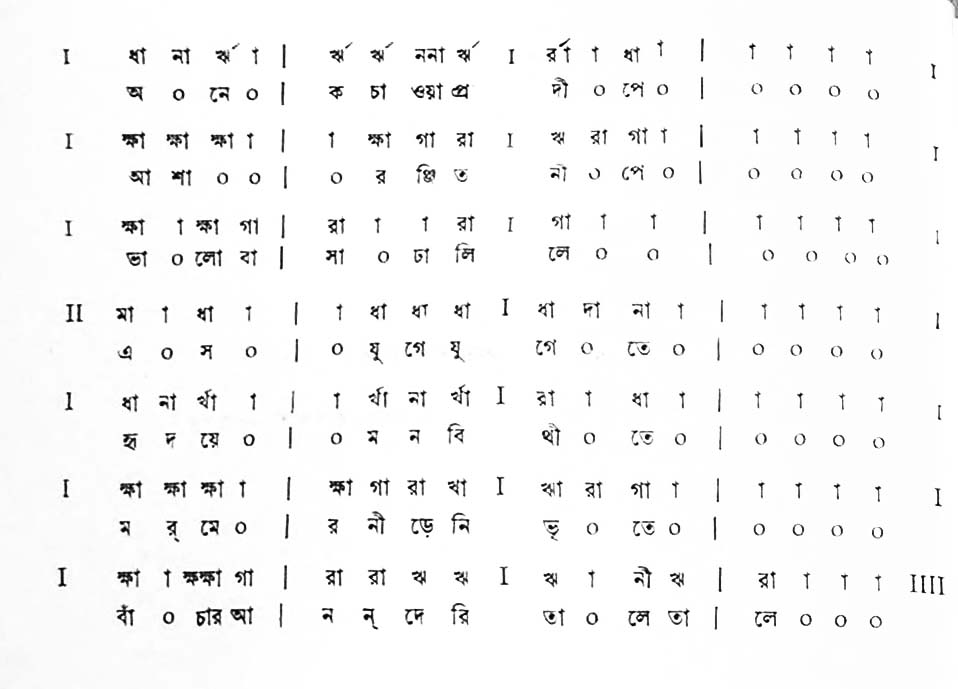 I ধা না র্ঋা া | র্ঋ র্ঋ ননা র্ঋ I র্রা া ধা া | া া া া I
অ ০ নে ০ | ক চা ওয়া প্র দী ০ পে ০ | ০ ০ ০ ০
I ক্ষা ক্ষা ক্ষা া | া ক্ষা গা রা I ঋ রা গা া | া া া া I
আ শা ০ ০ | ০ র ঞ্জি ত নী ০ পে ০ | ০ ০ ০ ০
I ক্ষা া ক্ষা গা | রা া া রা I গা া া | া া া া I
ভা ০ লো বা | সা ০ ঢা লি লে ০ ০ | ০ ০ ০ ০
II মা া ধা া | া ধা ধা ধা I ধা দা না া | া া া া I
এ ০ স ০ | ০ যু গে যু গে ০ তে ০ | ০ ০ ০ ০
I ধা না র্ঋা া | া র্ঋা না র্ঋা I রা া ধা া | া া া া I
হৃ দ য়ে ০ | ০ ম ন বি থী ০ তে ০ | ০ ০ ০ ০
I ক্ষা ক্ষা ক্ষা া | ক্ষা গা রা ঋা I ঋা রা গা া | া া া া I
ম র্ মে ০ | র নী ড়ে নি ভৃ ০ তে ০ | ০ ০ ০ ০
I ক্ষা া ক্ষক্ষা গা | রা রা ঋ ঋ I ঋ া নী ঋ | রা া া া IIII
বাঁ ০ চার আ | ন ন্ দে রি তা ০ লে তা | লে ০ ০ ০